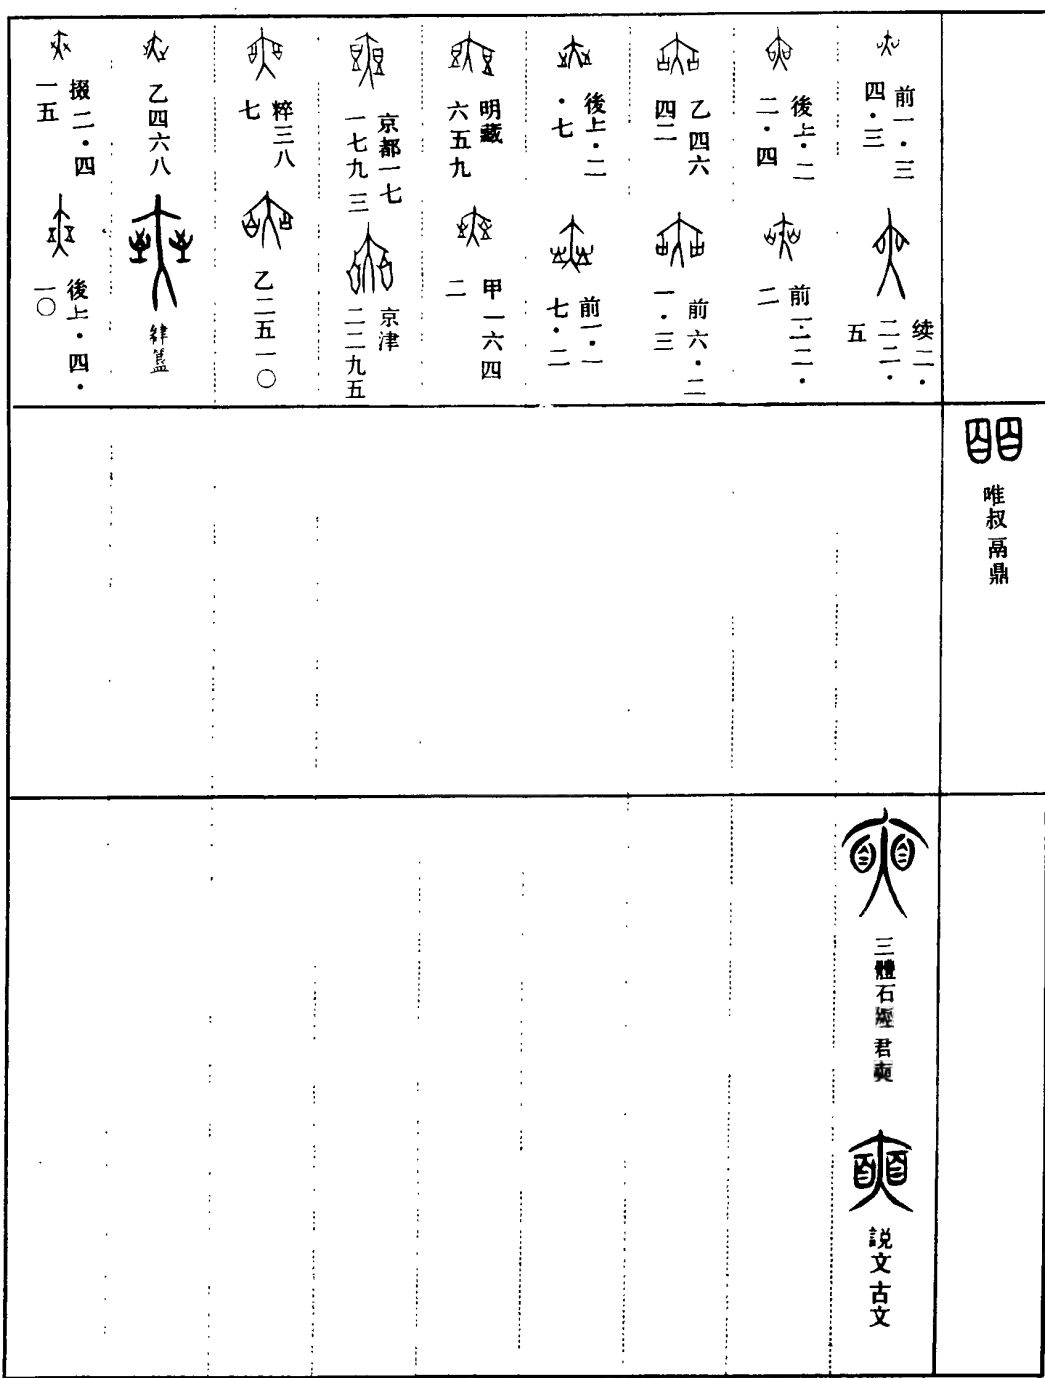 前一・三
四・三
续二・
二二・
五
後上・二
二・四
前一・二二・
二
乙四六
四二
前六・二
一・三
後上・二
・七
前一・一
七・二
明藏
六五九
甲一六四
二
京都一七
一七九三
京津
二二九五
粹三八
七
乙二五一〇
乙四六八
簋
掇二・四
一五
後上・四・
一〇
唯叔鬲鼎
三體石經君奭
説文古文